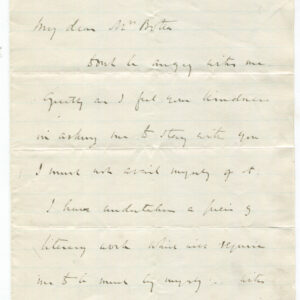 My dear Mrs
Don't be angry with me
Greatly as I feel your kindness
in asking me to stay with you
I must not avail myself of it.
I have undertaken a piece of
literary work which will require
me to be much by myself with